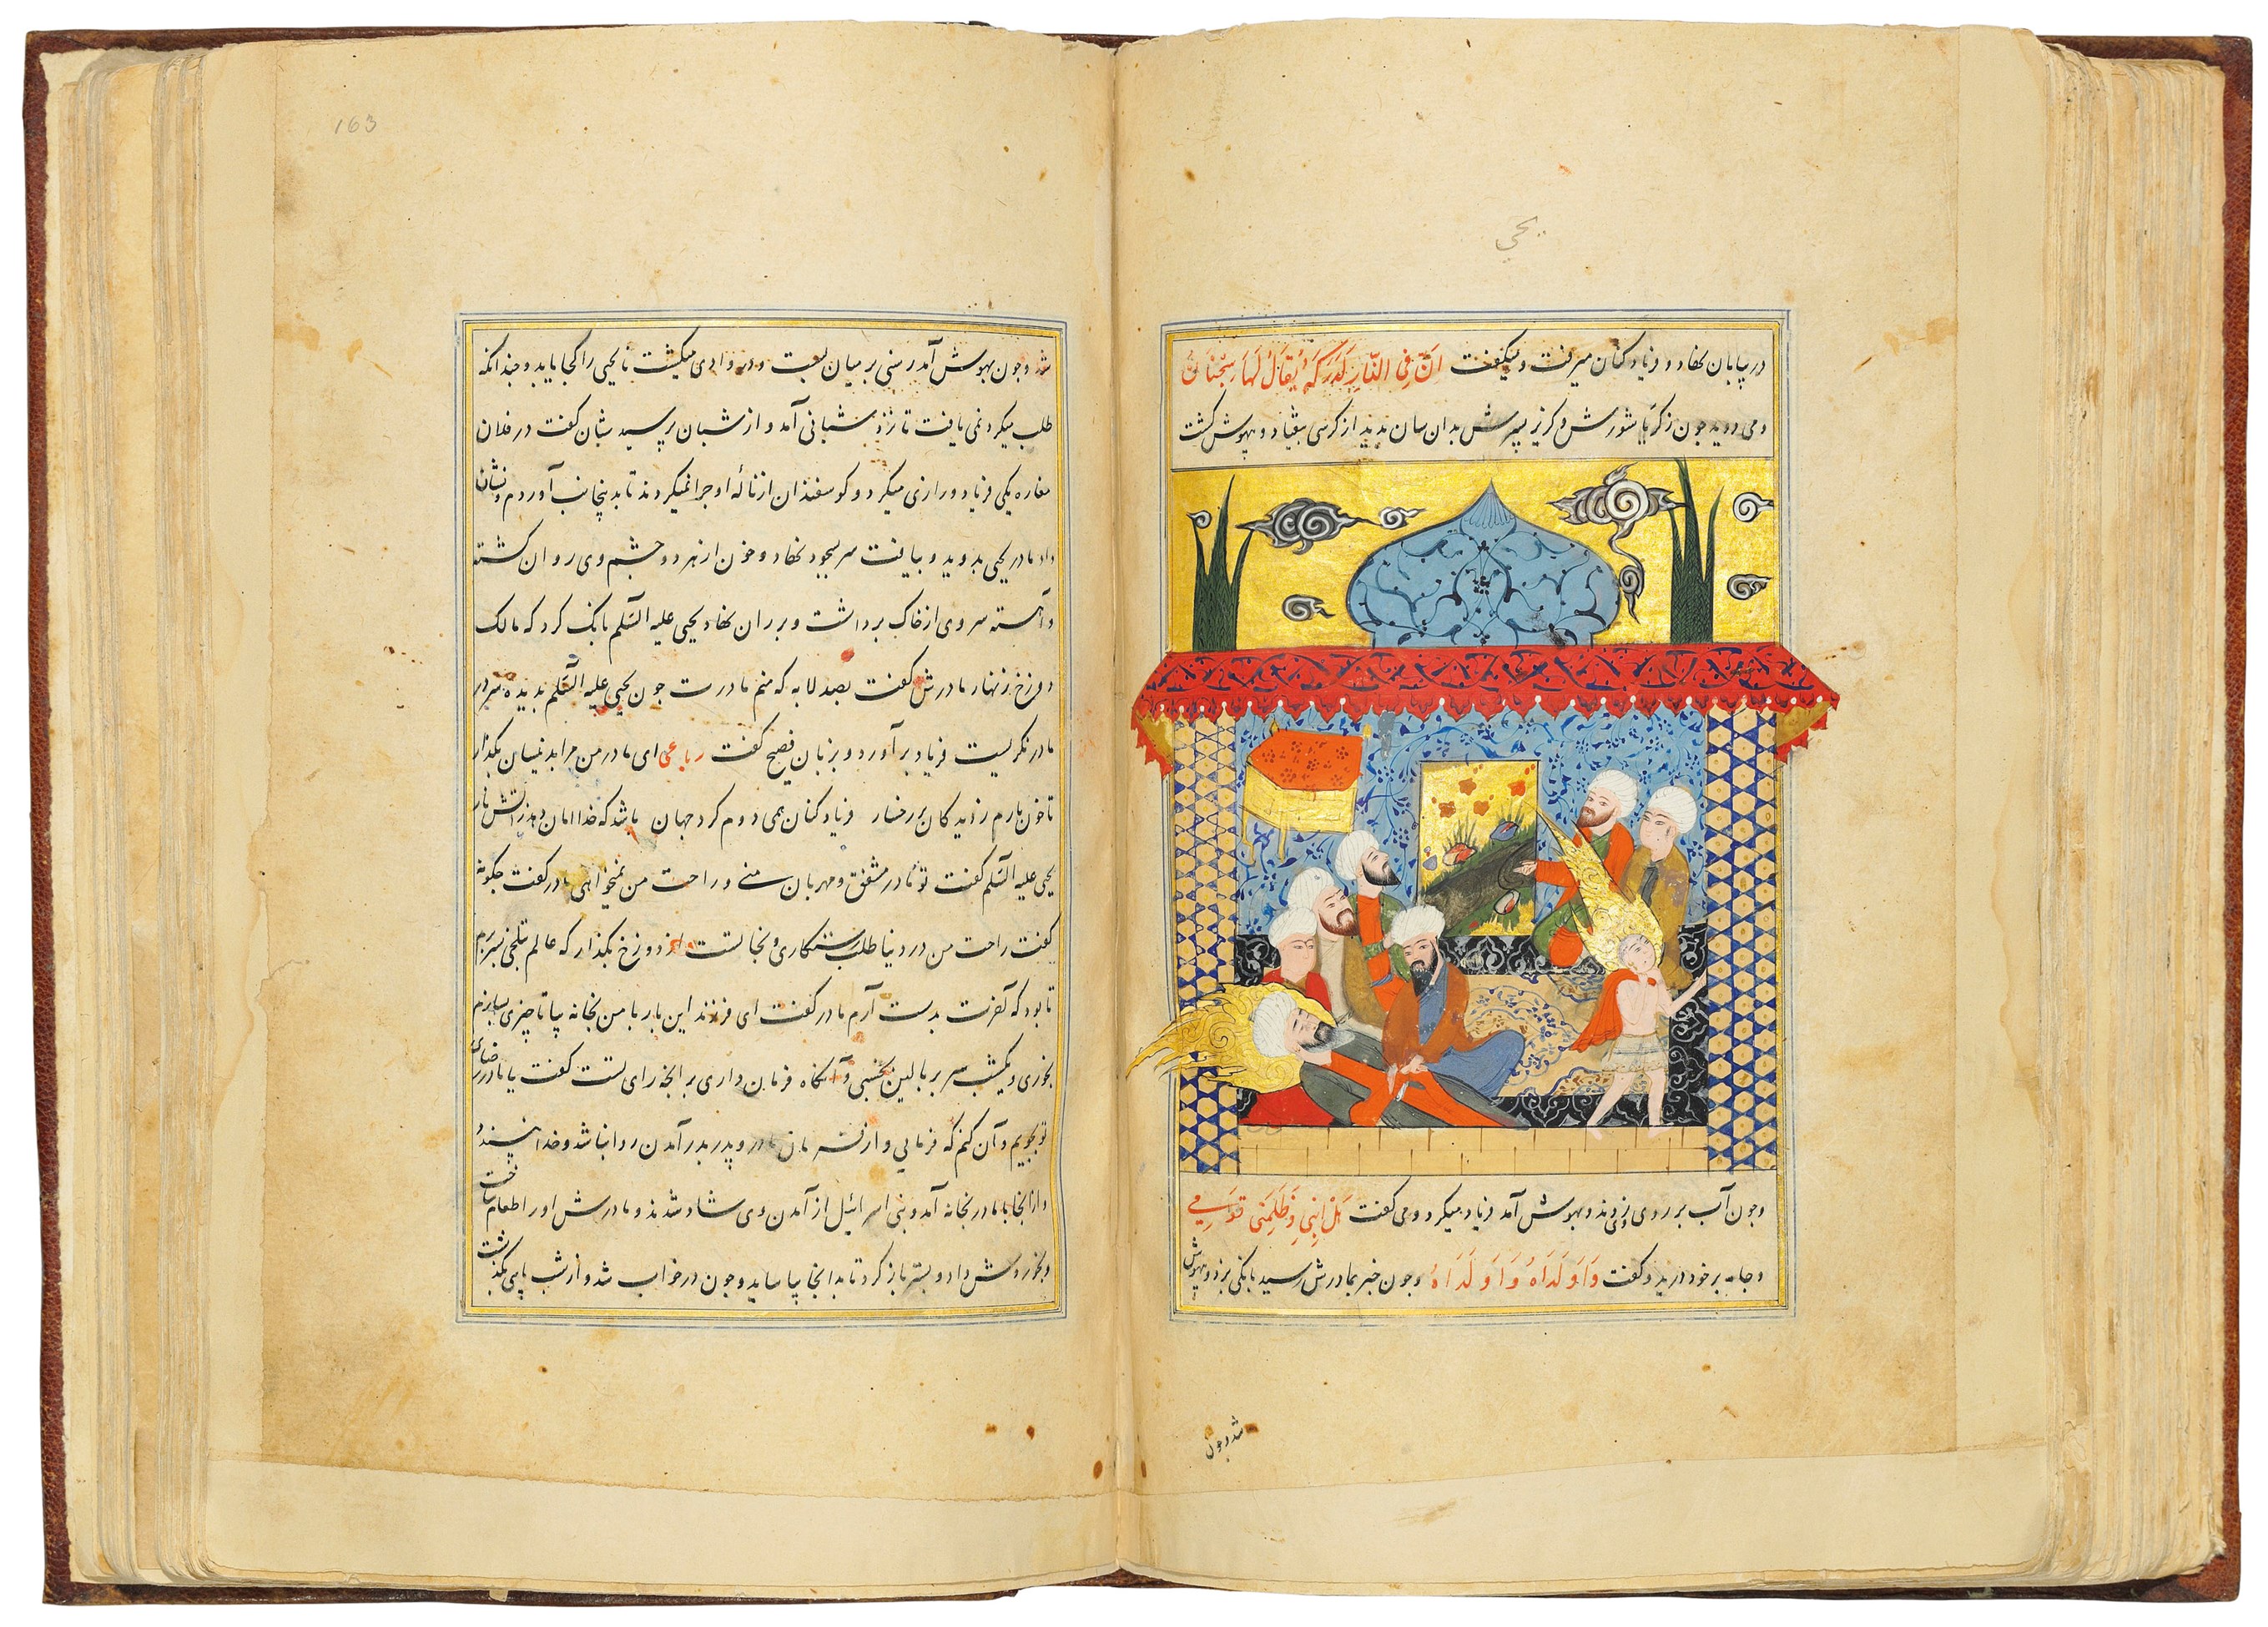 یحیی
در بیابان نهاد و فریاد کنان میرفت و میگفت اِنَّ فِی النَّارِ لَدَرَکَةٌ یُقَالُ لَهَا
و می دوید چون زکریا شورش و گریز پسرش بدان سان بدید از کرسی بیفتاد و بیهوش گشت
وچون آب بر روی وی زدند و بهوش آمد فریاد میکرد و می گفت
و جامه بر خود درید و گفت وَاوَلَدَاهُ وَاوَلَدَاهُ وچون خبر بمادرش رسید بانگی بزد و بیهوش
شد وچون
163
شد وچون بهوش آمد رسنی بر میان ببست و در وادی میگشت تا یحیی را کجا یابد و چندانکه
طلب میکرد نمی یافت تا نزد شبانی آمد و از شبان پرسید شبان گفت در فلان
مغاره یکی فریاد و زاری میکرد و گوسفندان از ناله او چرا نمیکردند تا بدینجانب آوردم ونشان
داد مادر یحیی بدوید و بیافت سر بسجود نهاده و خون از هر دو چشم وی روان گشته
و آهسته سر وی از خاک برداشت و بر ران نهاد یحیی علیه السّلم بانگ کرد که مالک
دوزخ زنهار مادرش گفت بصد لابه که منم مادرت چون یحیی علیه السّلم بدیده سر در
مادر نگریست فریاد برآورد و بزبان فصیح گفت رباعی ای مادر من مرا بدینسان بگذار
تا خون بارم ز دیدگان بر رخسار فریاد کنان همی دوم گرد جهان باشد که خدا امان دهد زآتش نار
یحیی علیه السّلم گفت تو مادر مشفق و مهربان منی و راحت من نمیخواهی مادر گفت چگونه
گفت راحت من در دنیا طلب رستگاری و نجاتست از دوزخ بگذار که عالم بتلخی بسر برم
تا بود که آخرت بدست آرم مادر گفت ای فرزند این بار با من بخانه بیا تا چیزی بسازم
بخوری و یکشب سر بر بالین بخسبی و آنگاه فرمان داری بر انچه رای تست گفت یا مادر رضای
تو بجویم و آن کنم که فرمایی و از فرمان مادر و پدر بدر آمدن روا نباشد و خدا نپسندد
و از انجا با مادر بخانه آمد و بنی اسرائیل از آمدن وی شاد شدند و مادرش او را طعام ساخت
و بخوردش داد و بستر باز کرد تا بدانجا بیاساید وچون در خواب شد و از شب پاسی بگذشت